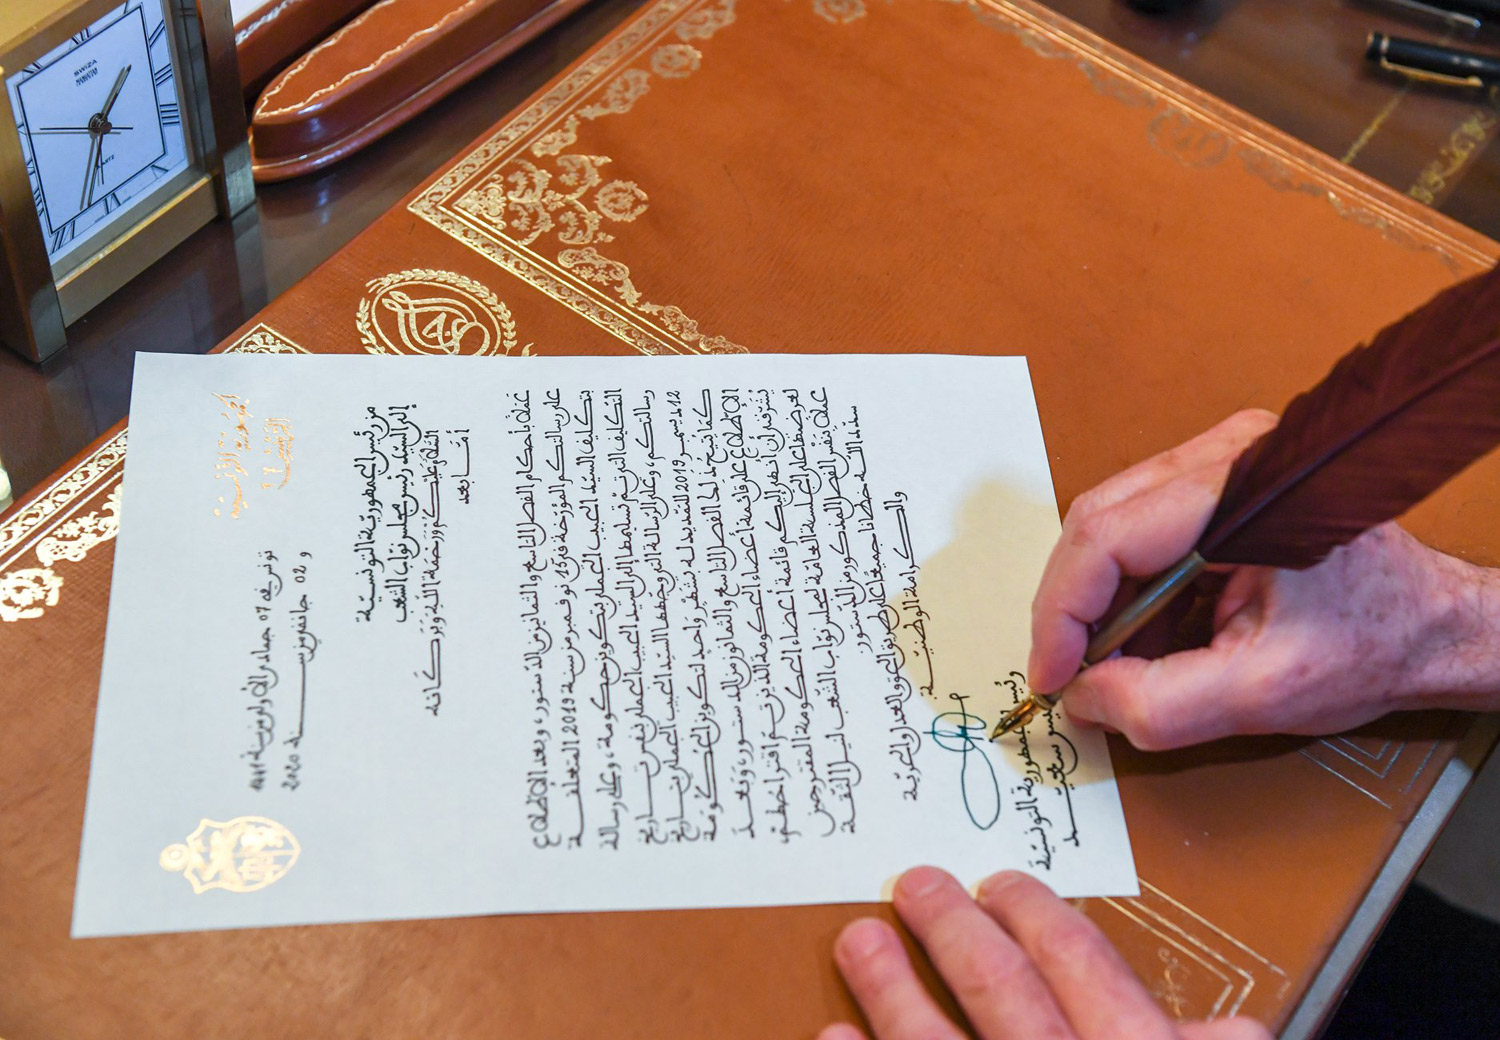 الجمهورية التونسية
تونس في 07 جمادى الأولى سنة 1441
و 02 جانفي سنة 2020
من رئيس الجمهورية التونسية
إلى السيد رئيس مجلس نواب الشعب
السلام عليكم ورحمة الله وبركاته
أما بعد
عملا بأحكام الفصل التاسع والثمانين من الدستور، وبعد الاطلاع
على رسالتكم المؤرخة في 15 نوفمبر من سنة 2019 المتعلقة
بتكليف السيد الحبيب الجملي بتكوين حكومة، وعلى رسالة
التكليف التي تم تسليمها إلى السيد الحبيب الجملي بنفس تاريخ
رسالتكم، وعلى الرسالة التي وجهها السيد الحبيب الجملي بتاريخ
12 ديسمبر 2019 للتمديد له بشهر واحد لتكوين الحكومة
كما يتيح ذلك الفصل التاسع والثمانون من الدستور، وبعد
الاطلاع على قائمة أعضاء الحكومة الذين تم اقتراحهم،
يشرفني أن أنقل إليكم قائمة أعضاء الحكومة المقترحين
لعرضها على الجلسة العامة لمجلس نواب الشعب لنيل الثقة
عملا بنفس الفصل المذكور من الدستور.
سدد الله خطانا جميعا على طريق الحق والعدل والحرية
والكرامة الوطنية
رئيس الجمهورية التونسية
قيس سعيد
SWIZA
QUARTZ